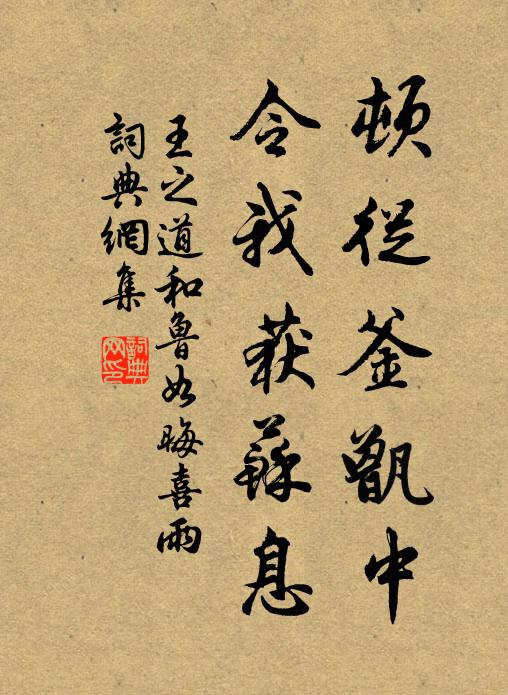 頓從釜甑中
令我获蘇息
王之道和魯如晦喜雨
詞典網集
詞典
網印